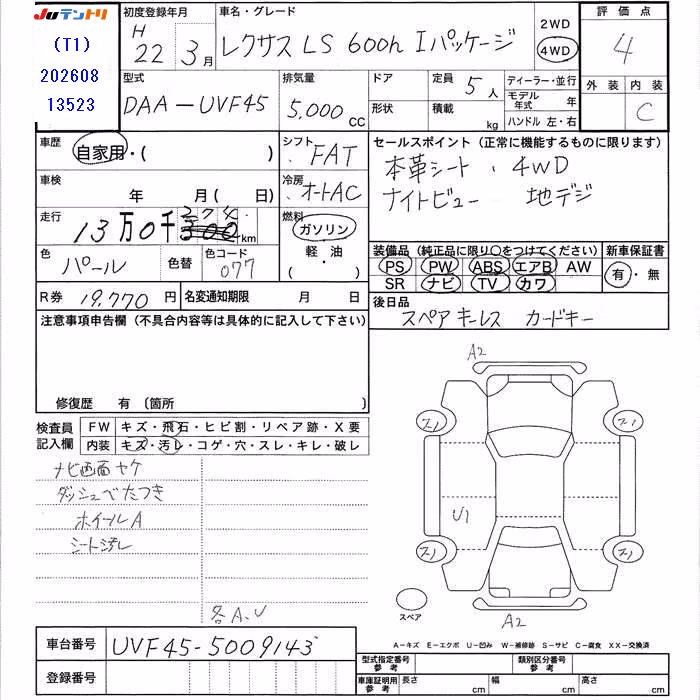 Juテントリ
(T1)
202608
13523
初度登録年月
H
22年3月
車名・グレード
レクサス LS 600h Iパッケージ
2WD
4WD
評価点
4
外装 内装
C
型式
DAA-UVF45
排気量
5,000 CC
ドア
形状
定員 5人
積載 kg
ディーラー・並行
モデル年式 年
ハンドル 左・右
車歴
自家用・( )
シフト
FAT
車検
年 月(日)
冷房
オートAC
走行
13万0千374km
燃料
ガソリン
軽・油
・( )
色
パール
色替
色コード
077
R券 19,770円
名変通知期限 月 日
セールスポイント(正常に機能するものに限ります)
本革シート、4WD
ナイトビュー 地デジ
装備品(純正品に限り○をつけてください)
新車保証書
PS PW ABS エアB AW
SR ナビ TV カワ
有・無
後日品
スペアキーレス カードキー
注意事項申告欄(不具合内容等は具体的に記入して下さい)
修復歴 有〔箇所 〕
検査員記入欄
FW キズ・飛石・ヒビ割・リペア跡・X要
内装 キズ・汚レ・コゲ・穴・スレ・キレ・破レ
ナビ画面ヤケ
ダッシュベたつき
ホイールA
シート汚レ
各A、U
A2
ス1
ス1
U1
ス1
ス1
スペア
A2
A-キズ E-エクボ U-凹み W-補修跡 S-サビ C-腐食 XX-交換済
車台番号 UVF45-5009143
登録番号
型式指定番号参考
類別区分番号参考
車庫証明用参考
長さ cm
幅 cm
高さ cm